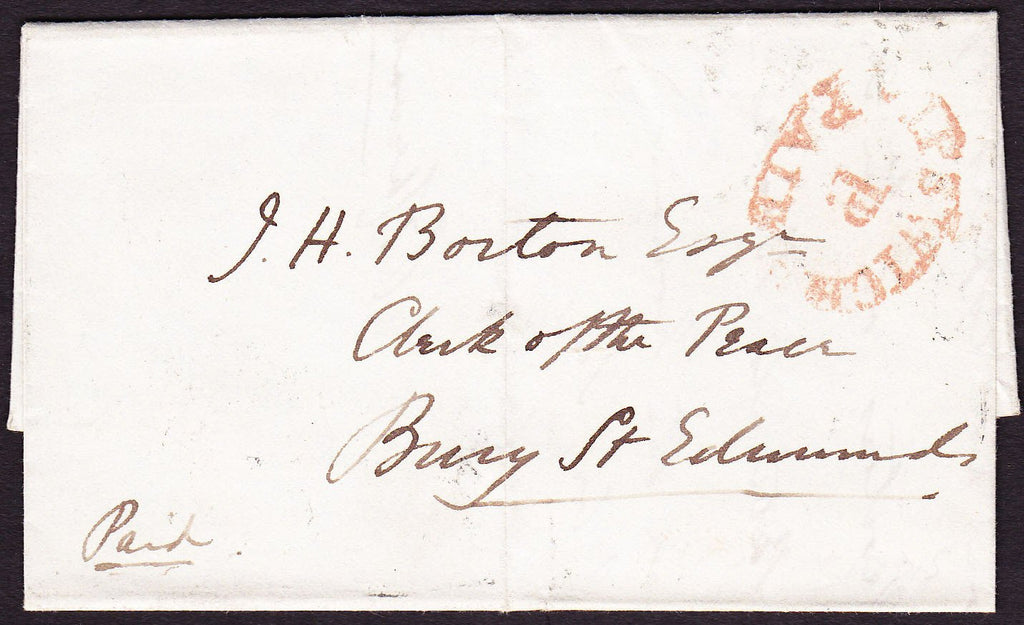 IPSWICH
PAID
P
J. H. Borton Esqr
Clerk of the Peace
Bury St Edmunds
Paid